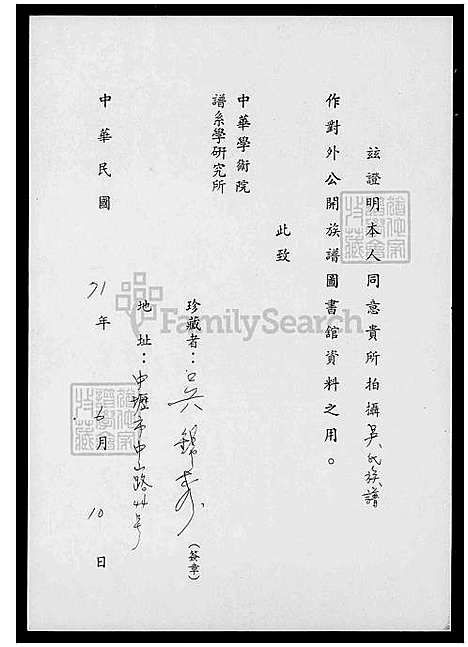 玆證明本人同意貴所拍攝吳氏族譜
作對外公開族譜圖書館資料之用。
此致
中華學術院
譜系學研究所
珍藏者：吳錦壽(簽章)
地址：中壢市中山路44号
中華民國71年6月10日
FamilySearch